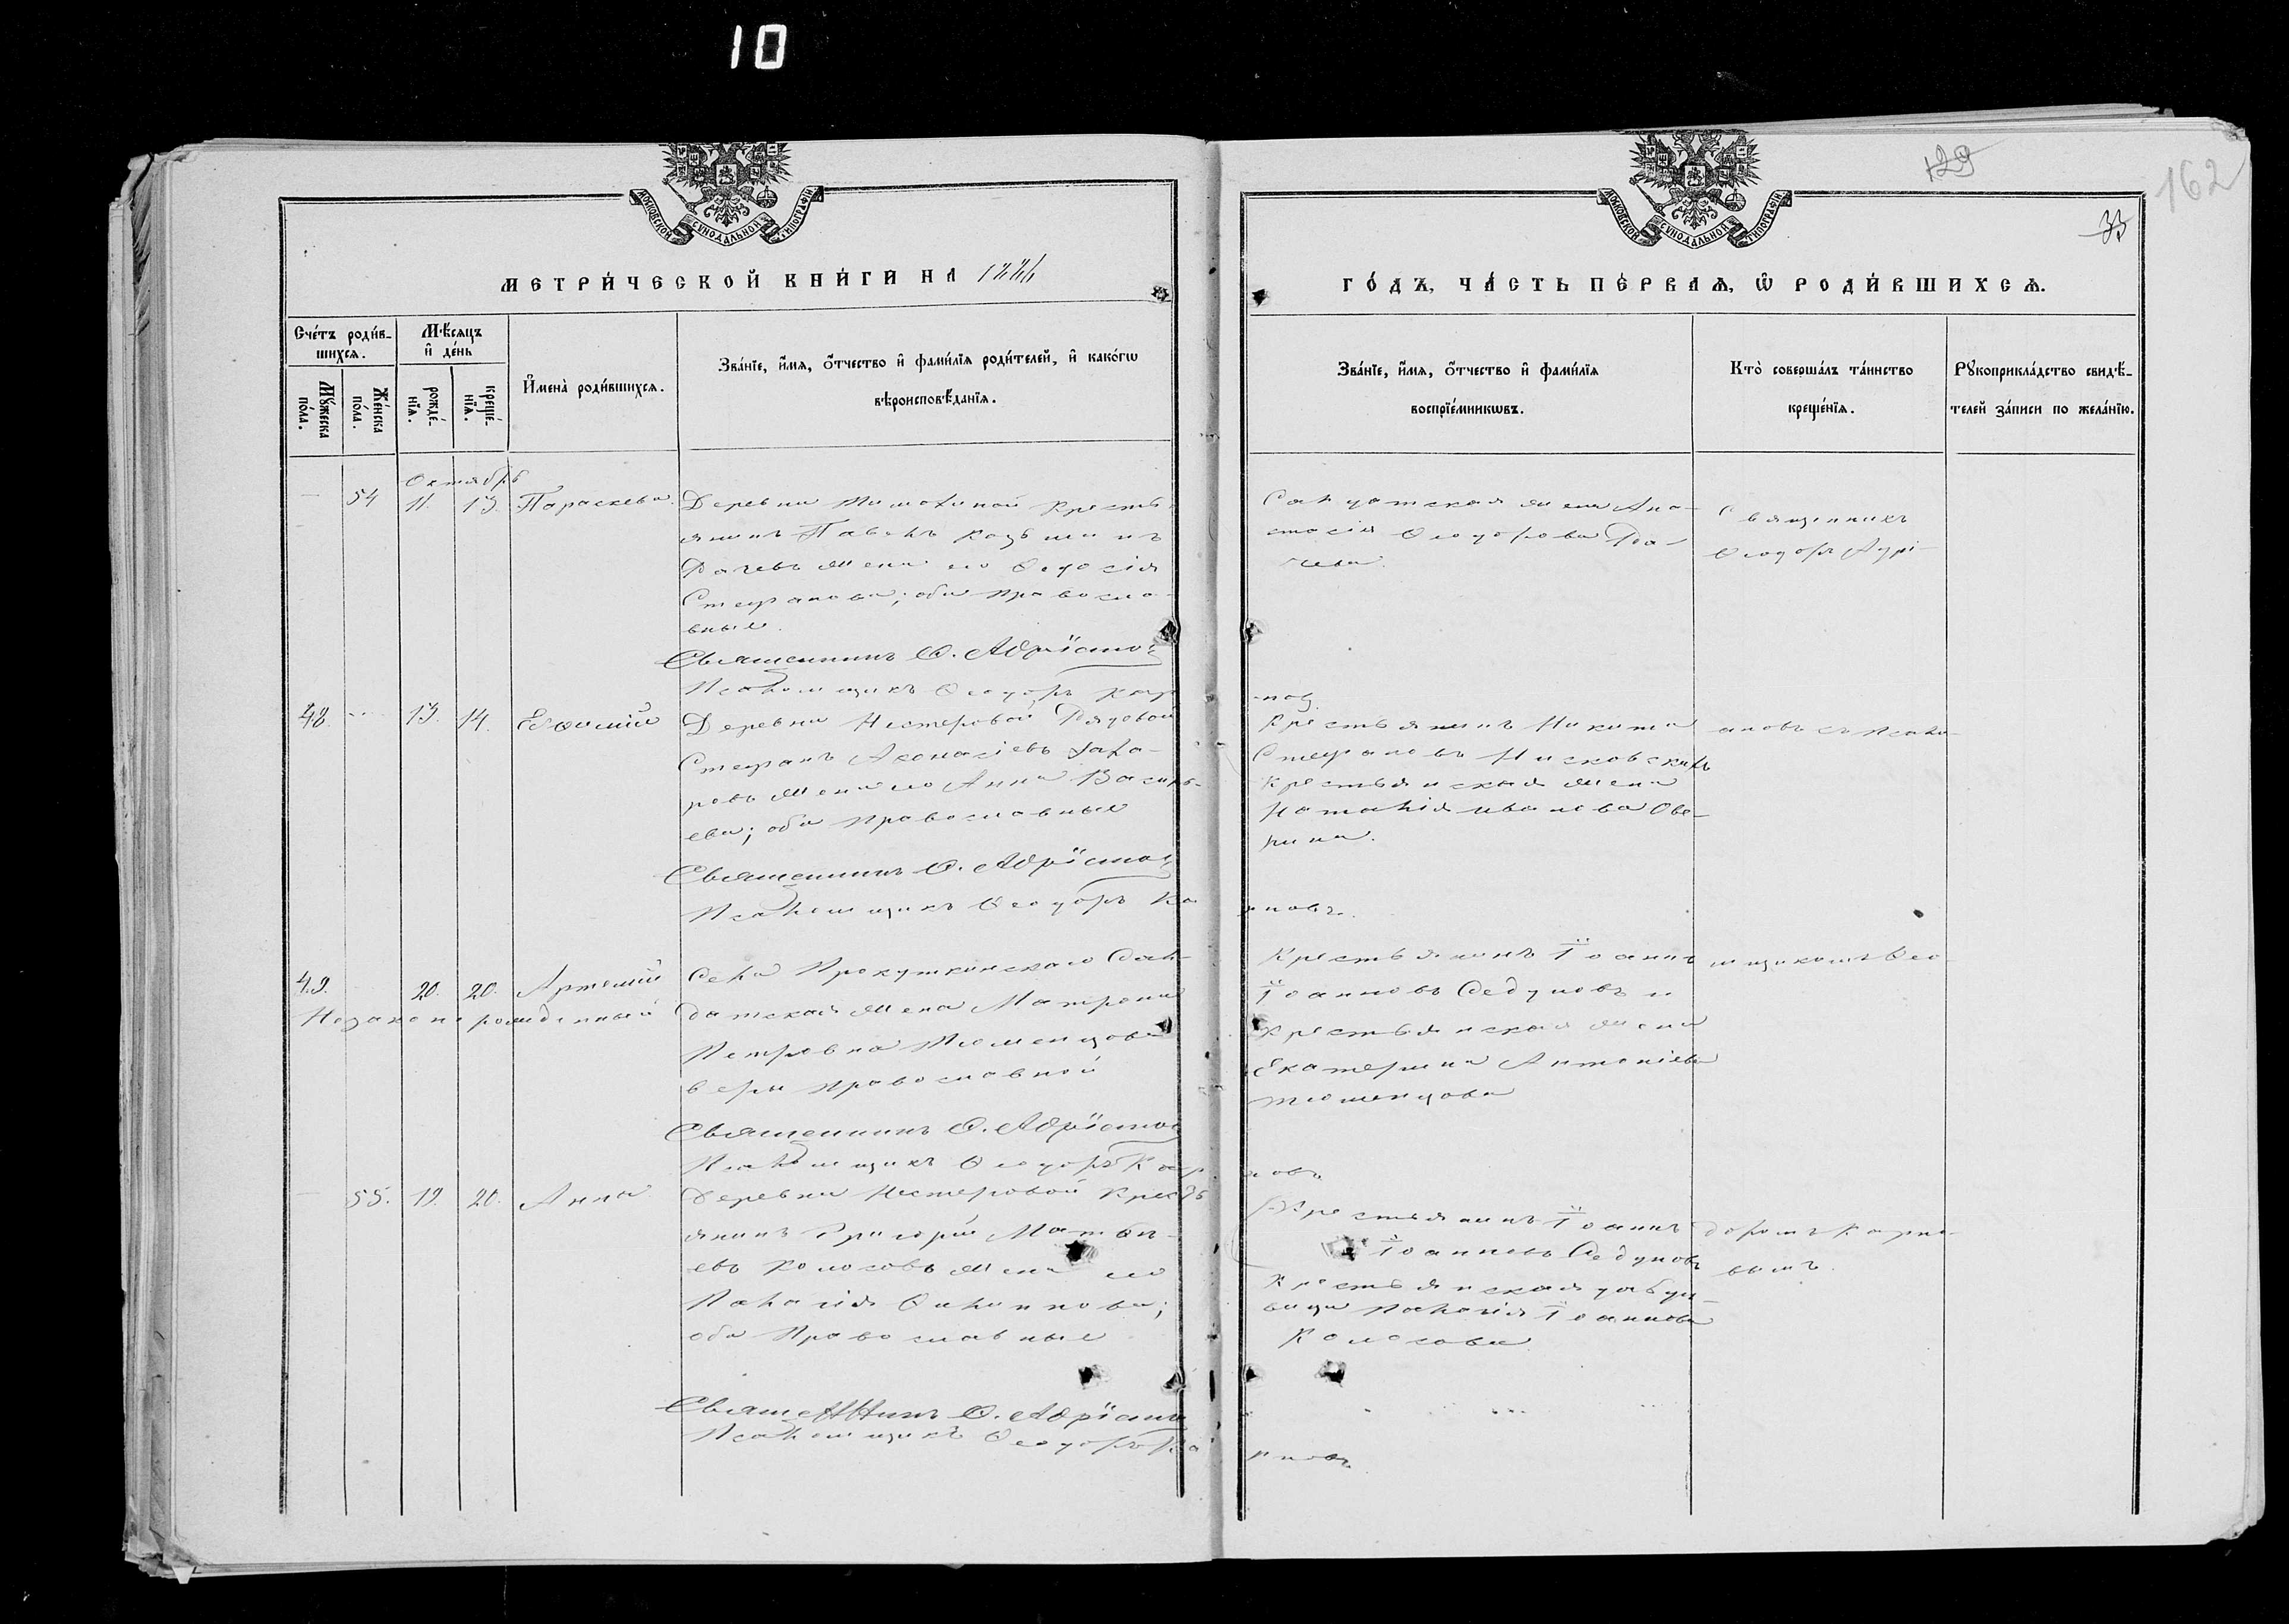 10
129
162
33
МОСКОВСКОЙ СѴНОДАЛЬНОЙ ТИПОГРАФІИ
МОСКОВСКОЙ СѴНОДАЛЬНОЙ ТИПОГРАФІИ
МЕТРИ́ЧЕСКОЙ КНИ́ГИ НА
ГО́ДЪ, ЧА́СТЬ ПЕ́РВАѦ, Ѿ РОДИ́ВШИХСѦ.
Сче́тъ роди́в-
шихсѧ.
Мꙋ́жеска по́ла.
Же́нска по́ла.
Мѣ́сѧцъ
и҆ де́нь
рожде́-
нїѧ.
креще́-
нїѧ.
И҆мена̀ роди́вшихсѧ.
Зва́нїе, и҆́мѧ, ѻ҆́тчество и҆ фами́лїѧ роди́телей, и҆ како́гѡ
вѣроисповѣ́данїѧ.
Зва́нїе, и҆́мѧ, ѻ҆́тчество и҆ фами́лїѧ
воспрїе́мникѡвъ.
Кто̀ соверша́лъ та́инство
креще́нїѧ.
Рꙋкоприкла́дство свидѣ́-
телей за́писи по жела́нїю.
Октябрь
54 11. 13. Параскева.
Деревни Крестъ-
янинъ Павелъ Козьминъ
Рачевъ жена его Ѳедосія
Стефанова; оба Правосла-
вные.
Священникъ Ѳ. Адріанов
Псаломщикъ Ѳеодоръ Карп
Солдатская жена Ана-
стасія Ѳеодорова Ра-
чева.
Священникъ
Ѳеодоръ Адрі-
-нов
48. 13. 14. Евѳимій
Деревни Нестеровой Рядовой
Стефанъ Аѳонасіевъ Заха-
ровъ жена его Анна Василь-
ева; оба Православные
Священникъ Ѳ. Адріанов
Псаломщикъ Ѳеодоръ Ка
Крестьянинъ Никита
Стефановъ
Крестьянская жена
Наталія Иванова Ове-
рина.
ановъ съ псало-
рповъ.
49. 20. 20. Артемій
Незаконнорожденный
Села Прокуткинскаго Сол-
датская жена Матрона
Петровна Тюменцова
веры Православной
Священникъ Ѳ. Адріанов
Псаломщикъ Ѳеодоръ Карп
Крестьянинъ Іоаннъ
Іоанновъ Седуновъ и
Крестьянская жена
Екатерина Антоніева
Тюменцова
мщикомъ Ѳео-
овъ
55. 19. 20. Анна
Деревни Нестеровой Кресть
янинъ Григорій Матѳи-
евъ Колосовъ жена его
Пелагія Филиппова;
оба Православные
Священникъ Ѳ. Адріанов
Псаломщикъ Ѳеодоръ Ка
Крестьянинъ Іоаннъ
Іоанновъ Седуновъ
Крестьянская
вица Пелагія Іоаннова
Колосова.
доромъ Карпо-
вымъ.
рповъ